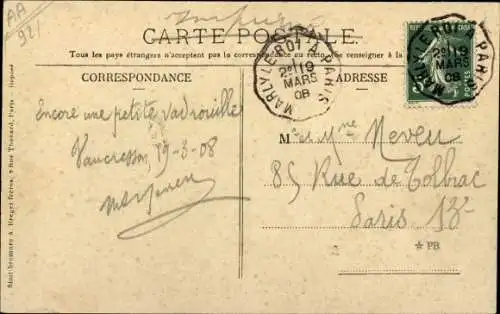 AA
921
CARTE POSTALE
Tous les pays étrangers n'acceptent pas la correspondance au recto (Se renseigner à la
CORRESPONDANCE
ADRESSE
MARLY LE ROI A PARIS
2E 19
MARS
08
MARLY LE ROI A PARIS
2E 19
MARS
08
Encore une petite vadrouille
Vaucresson, 19-3-08
M et Mme Neveu
85 Rue de Tolbiac
Paris 13e
* PB
Simili-bromure A. Breger frères, 9 Rue Thénard, Paris